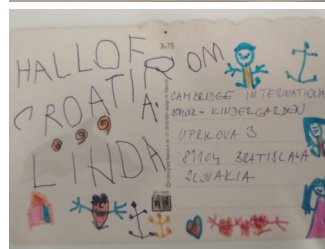 HALLO FROM
CROATIA
LINDA
X-75
CAMBRIDGE INTERNATIONAL
SCHOOL - KINDERGARDEN
UPRKOVA 3
81104 BRATISLAVA
SLOVAKIA